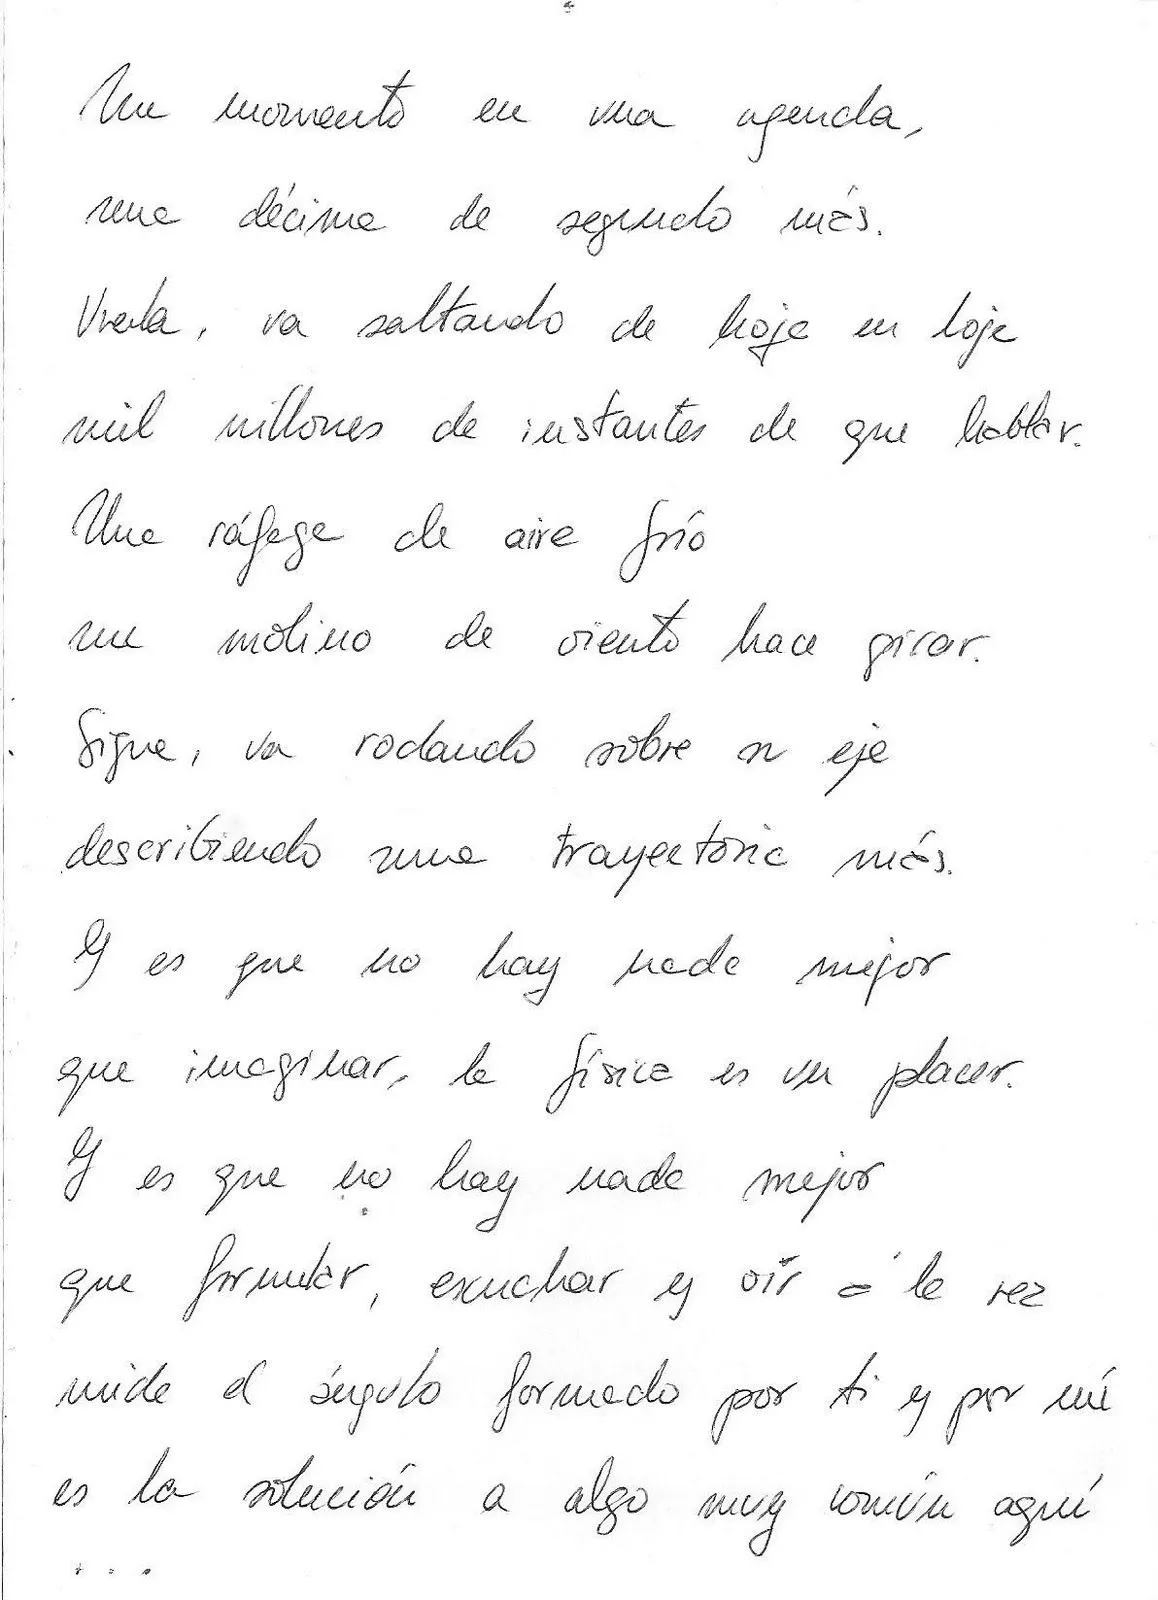 Un momento en una agenda,
una décima de segundo más.
Vuela, va saltando de hoja en hoja
mil millones de instantes de que hablar.
Una ráfaga de aire frío
un molino de viento hace girar.
Sigue, va rodando sobre su eje
describiendo una trayectoria más.
Y es que no hay nada mejor
que imaginar, la física es un placer.
Y es que no hay nada mejor
que formular, escuchar y oír a la vez
mide el ángulo formado por ti y por mí
es la solución a algo muy común aquí
...